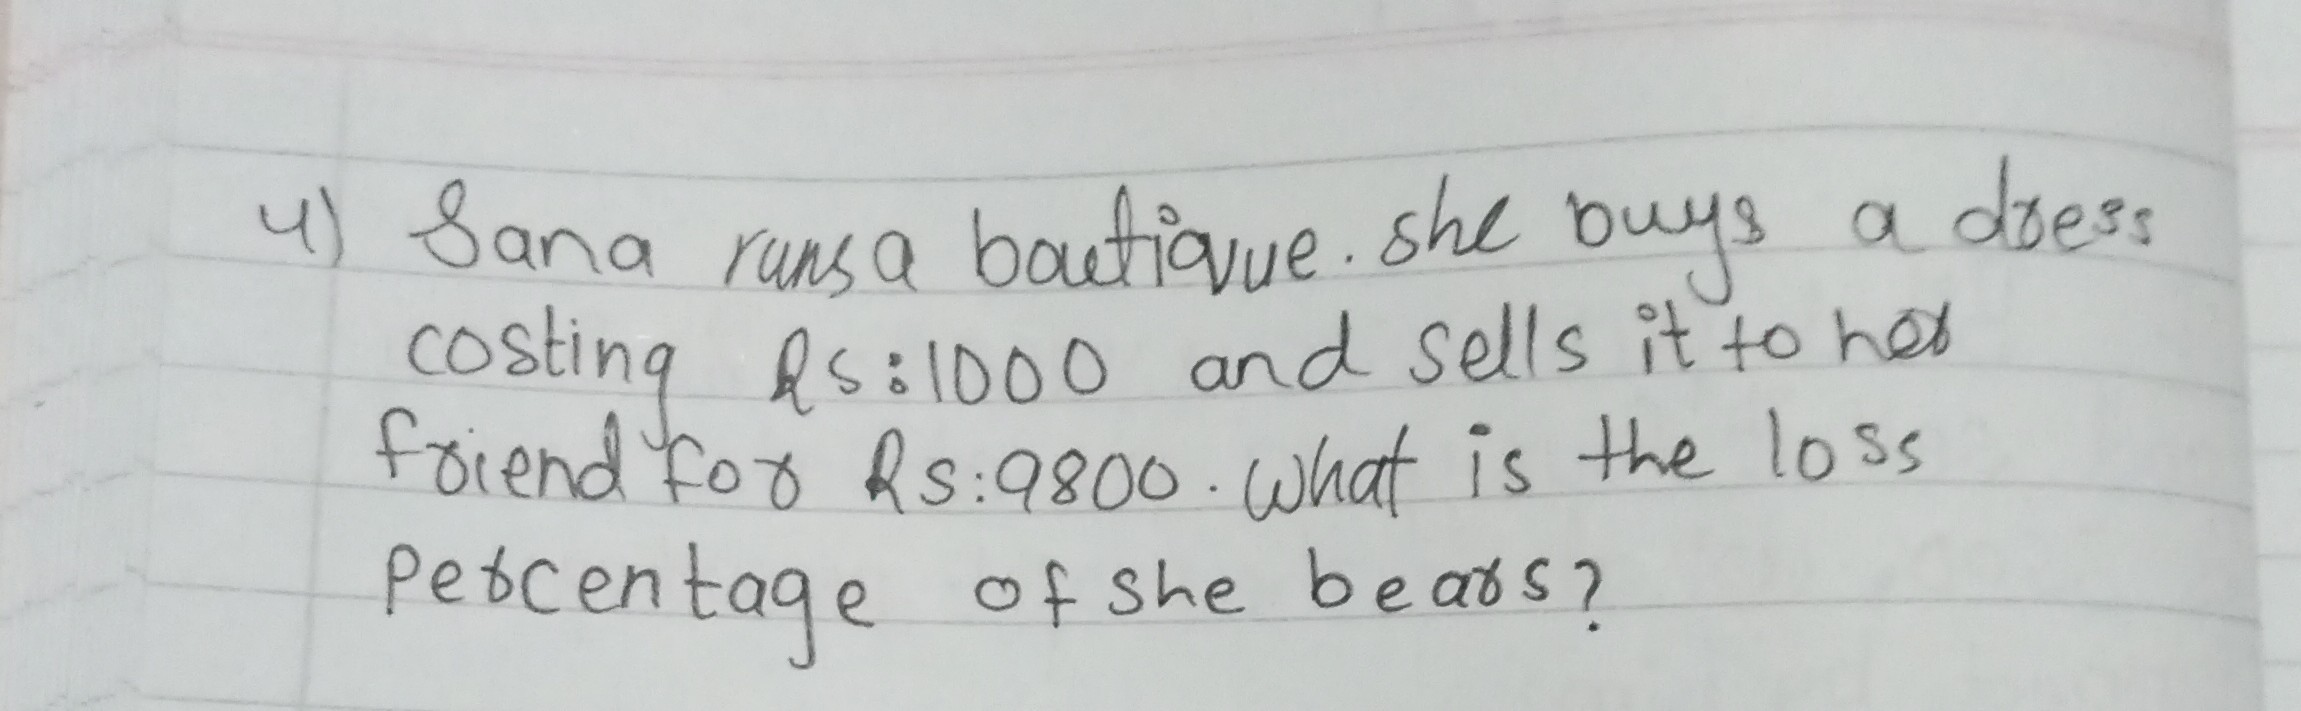 4) Sana runs a boutique. she buys a dress
costing Rs:1000 and sells it to her
friend for Rs:9800. What is the loss
Percentage of she bears?